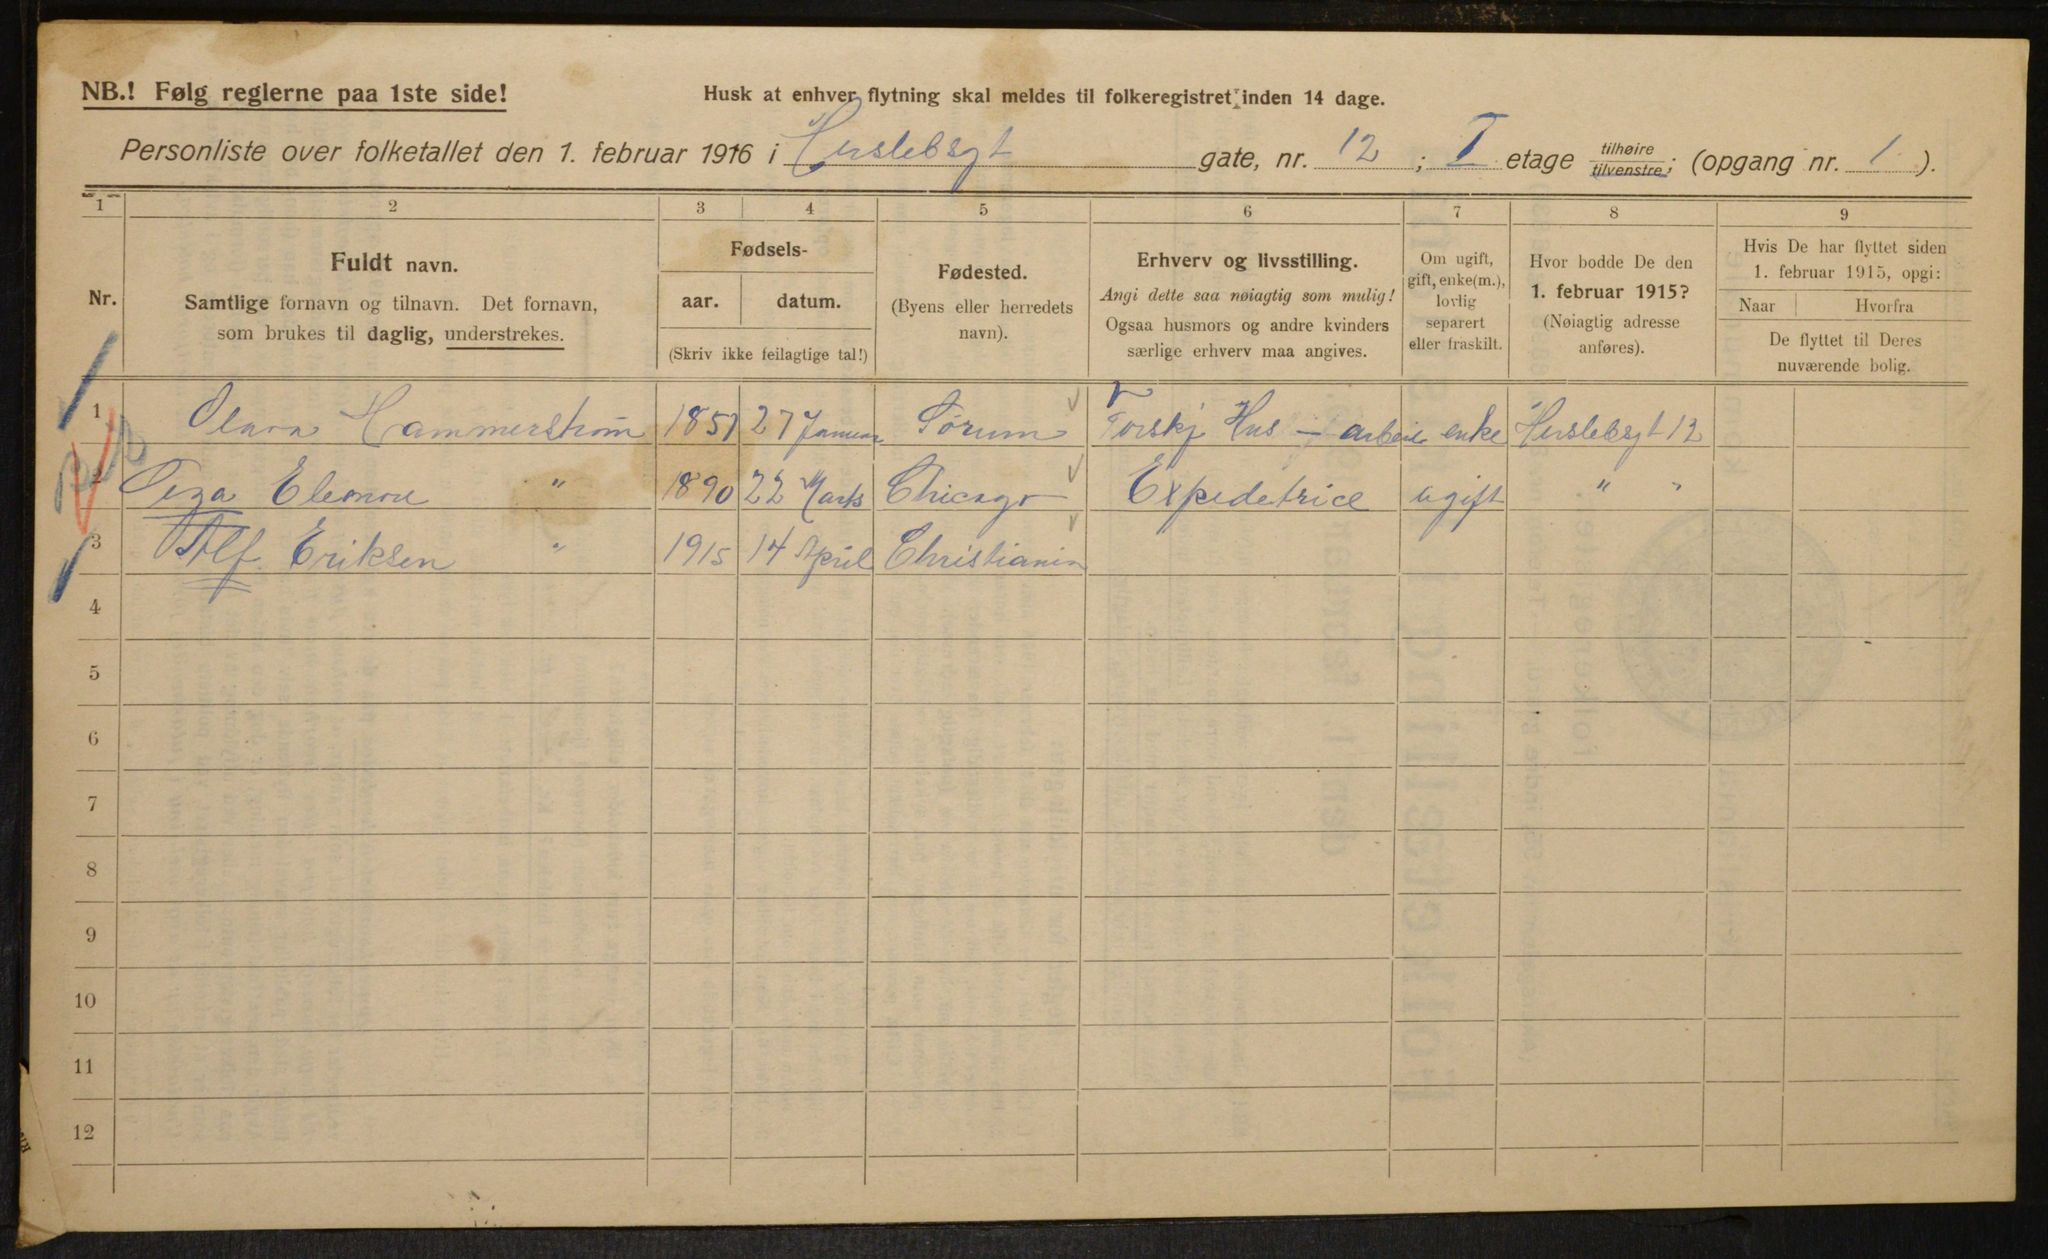 NB.! Følg reglerne paa 1ste side!
Husk at enhver flytning skal meldes til folkeregistret inden 14 dage.
Personliste over folketallet den 1. februar 1916 i Herslebsgt gate, nr. 12 ; I etage tilhøire tilvenstre; (opgang nr. 1 ).
1 2 3 4 5 6 7 8 9
Nr.
Fuldt navn.
Samtlige fornavn og tilnavn. Det fornavn,
som brukes til daglig, understrekes.
Fødsels-
aar. datum.
(Skriv ikke feilagtige tal!)
Fødested.
(Byens eller herredets
navn).
Erhverv og livsstilling.
Angi dette saa nøiagtig som mulig!
Ogsaa husmors og andre kvinders
særlige erhverv maa angives.
Om ugift,
gift, enke(m.),
lovlig
separert
eller fraskilt.
Hvor bodde De den
1. februar 1915?
(Nøiagtig adresse
anføres).
Hvis De har flyttet siden
1. februar 1915, opgi:
Naar Hvorfra
De flyttet til Deres
nuværende bolig.
1 Hammerstrøm 1851 27 Januar Sørum Forskj Hus — arbeie enke Herslebsgt 12
2 Eleonore " 1890 22 Marts Chicago Expedetrice ugift " "
3 Alf Eriksen " 1915 14 April Christiania
4
5
6
7
8
9
10
11
12